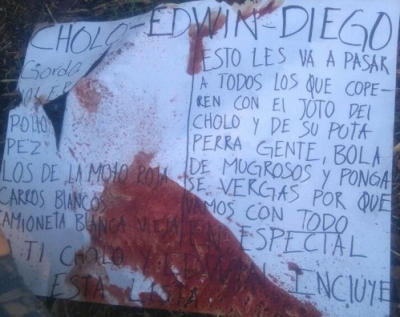 CHOLO-EDWIN-DIEGO
Gordo
POLLO
PEZ
LOS DE LA MOTO ROJA
CARROS BLANCOS
CAMIONETA BLANCA VIEJA
ESTO LES VA A PASAR
A TODOS LOS QUE COPE-
REN CON EL JOTO DEL
CHOLO Y DE SU PUTA
PERRA GENTE, BOLA
DE MUGROSOS Y PONGA
SE VERGAS POR QUE
VAMOS CON TODO
EN ESPECIAL
TI CHOLO Y EDWIN INCLUYE
ESTA LISTA